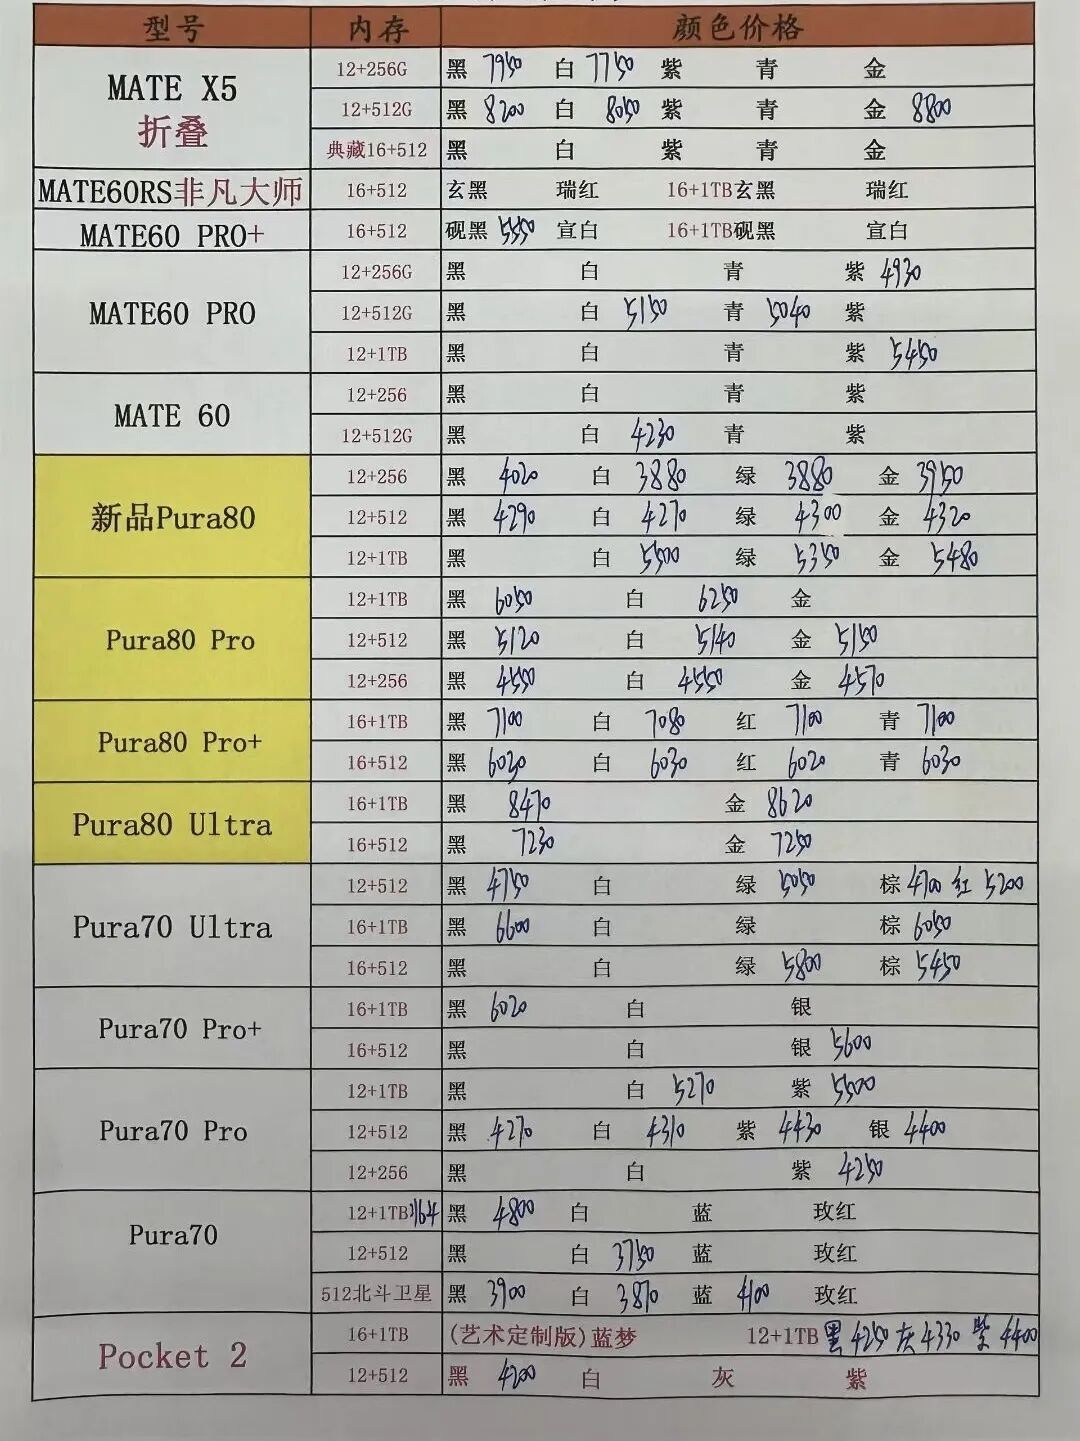 型号 内存 颜色价格
MATE X5 折叠 12+256G 黑 7950 白 7750 紫 青 金
12+512G 黑 8200 白 8050 紫 青 金 8800
典藏16+512 黑 白 紫 青 金
MATE60RS非凡大师 16+512 玄黑 瑞红 16+1TB玄黑 瑞红
MATE60 PRO+ 16+512 砚黑 5550 宣白 16+1TB砚黑 宣白
MATE60 PRO 12+256G 黑 白 青 紫 4930
12+512G 黑 白 5150 青 5040 紫
12+1TB 黑 白 青 紫 5450
MATE 60 12+256 黑 白 青 紫
12+512G 黑 白 4230 青 紫
新品Pura80 12+256 黑 4020 白 3880 绿 3880 金 3950
12+512 黑 4290 白 4270 绿 4300 金 4320
12+1TB 黑 白 5500 绿 5350 金 5480
Pura80 Pro 12+1TB 黑 6050 白 6250 金
12+512 黑 5120 白 5140 金 5150
12+256 黑 4550 白 4550 金 4570
Pura80 Pro+ 16+1TB 黑 7100 白 7080 红 7100 青 7100
16+512 黑 6030 白 6030 红 6020 青 6030
Pura80 Ultra 16+1TB 黑 8470 金 8620
16+512 黑 7230 金 7250
Pura70 Ultra 12+512 黑 4750 白 绿 5050 棕 4700 红 5200
16+1TB 黑 6600 白 绿 棕 6050
16+512 黑 白 绿 5800 棕 5450
Pura70 Pro+ 16+1TB 黑 6020 白 银
16+512 黑 白 银 5600
Pura70 Pro 12+1TB 黑 白 5270 紫 5500
12+512 黑 4270 白 4310 紫 4430 银 4400
12+256 黑 白 紫 4250
Pura70 12+1TB 黑 4800 白 蓝 玫红
12+512 黑 白 3750 蓝 玫红
512北斗卫星 黑 3900 白 3870 蓝 4100 玫红
Pocket 2 16+1TB (艺术定制版)蓝梦 12+1TB 黑 4250 灰 4330 紫 4400
12+512 黑 4200 白 灰 紫